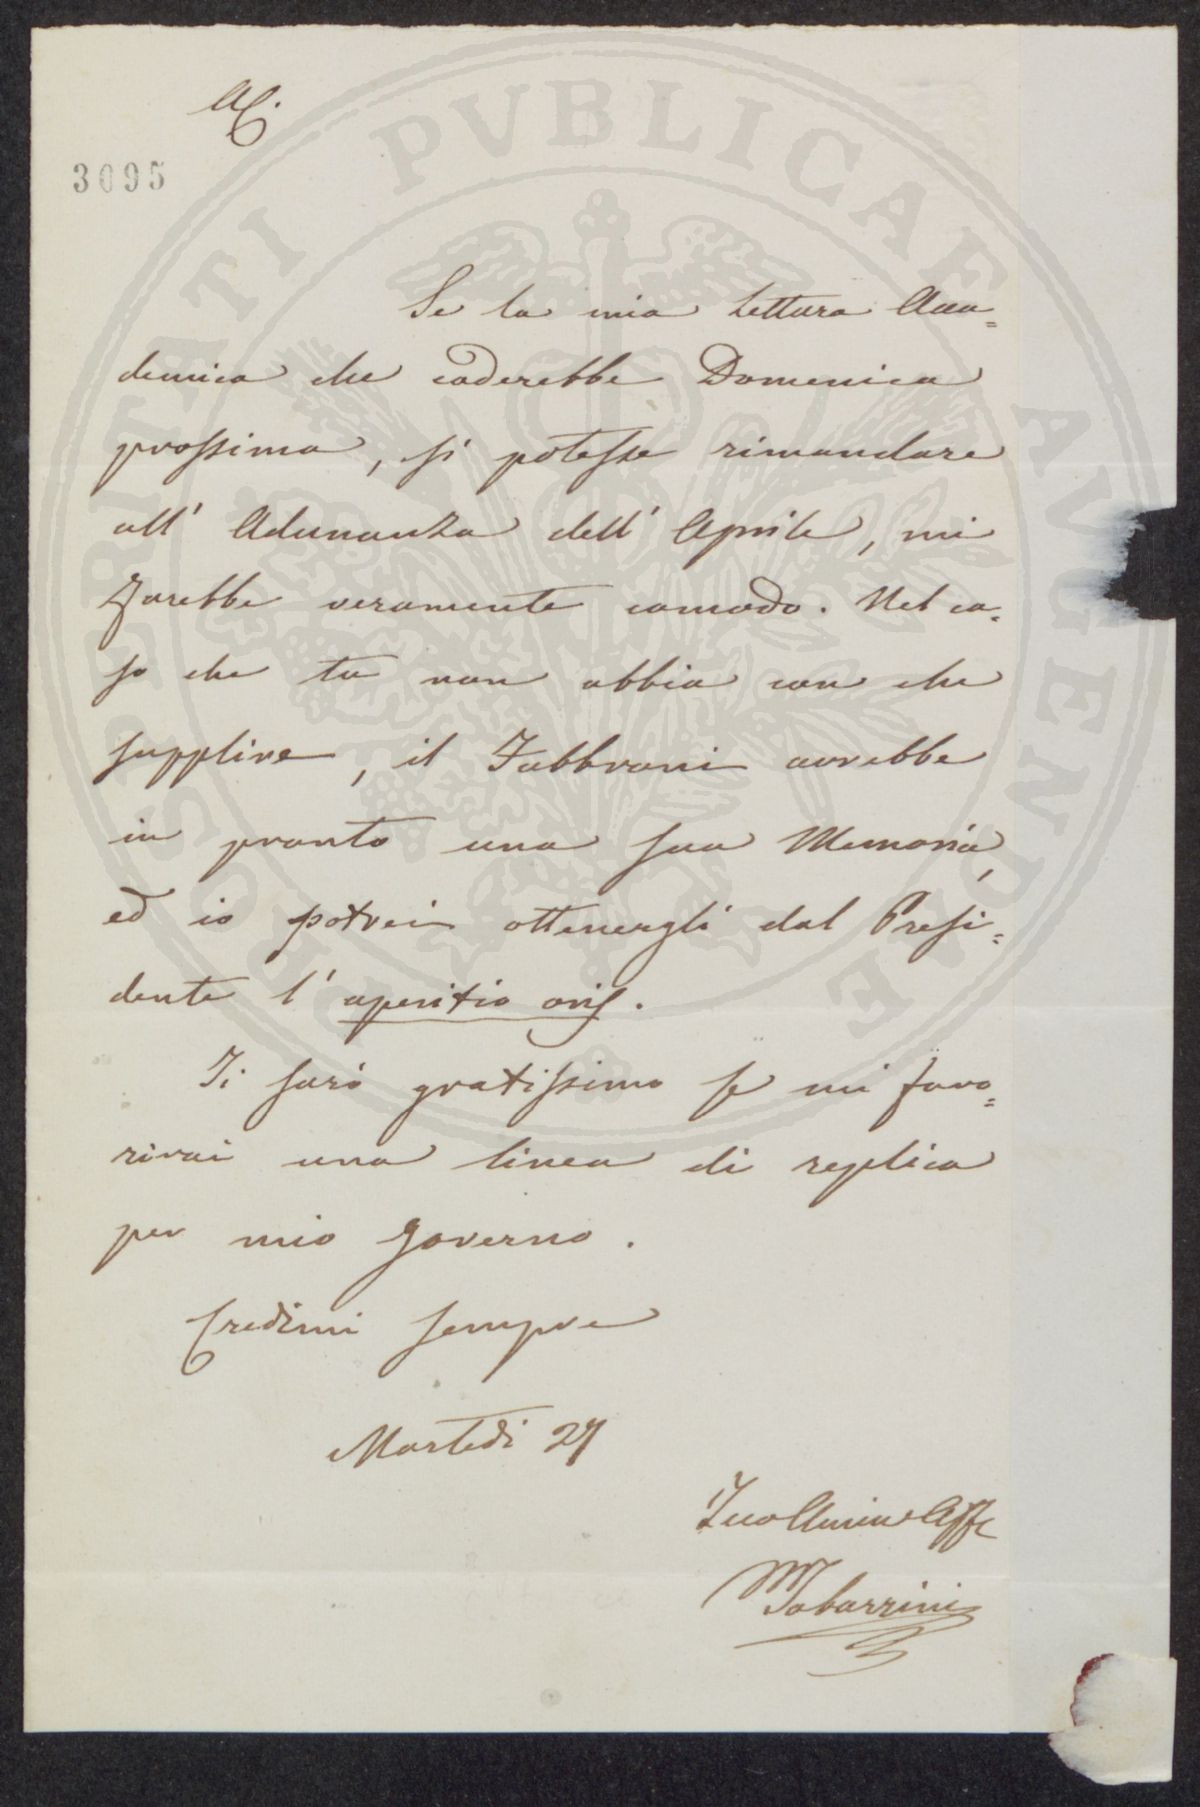 AC.
3095
PROSPERITATI PVBLICAE AVGENDAE
Se la mia lettura Acca=
demica che caderebbe Domenica
prossima, si potesse rimandare
all' Adunanza dell' Aprile, mi
Sarebbe veramente comodo. Nel ca=
so che tu non abbia con che
supplire, il Tabbroni avrebbe
in pronto una sua Memoria,
ed io potrei ottenergli dal Presi=
dente l' aperitio oris.
Ti sarò gratissimo se mi favo=
rirai una linea di replica
per mio governo.
Credimi sempre
Martedì 27
Tuo Amico Affe
MTabarrini